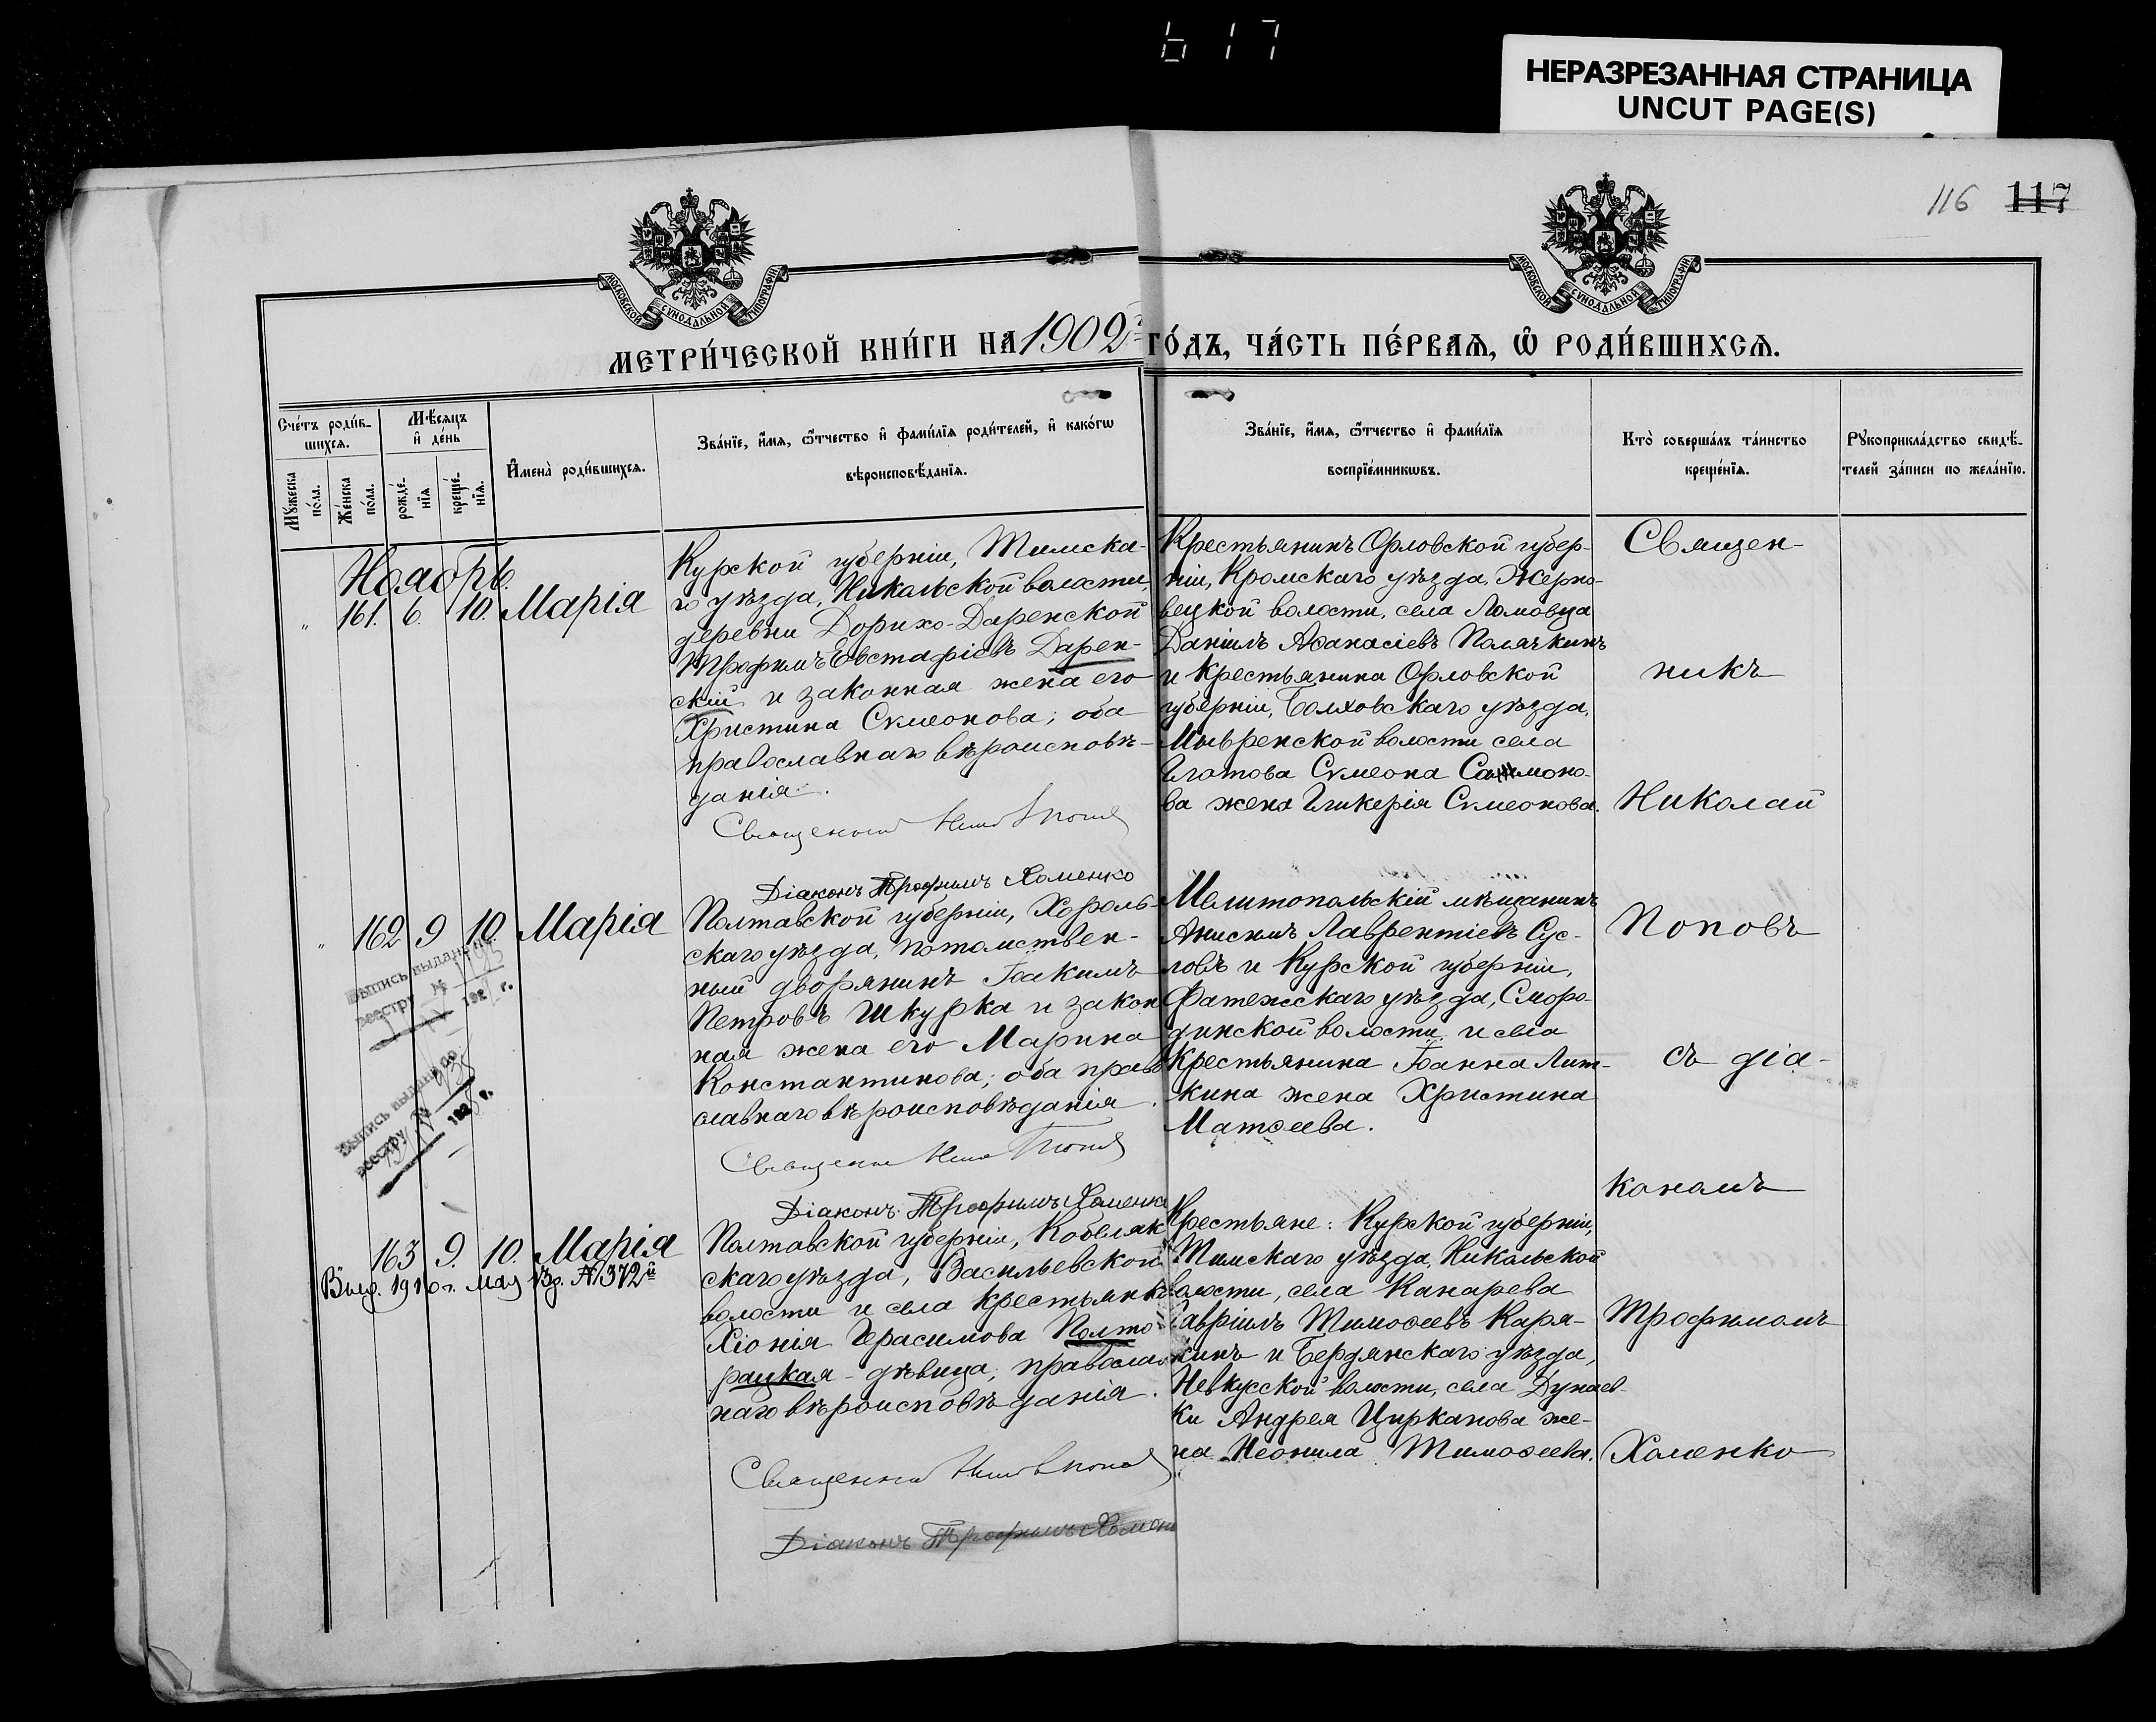 617
НЕРАЗРЕЗАННАЯ СТРАНИЦА
UNCUT PAGE(S)
116 117
МОСКОВСКОЙ СѴНОДАЛЬНОЙ ТИПОГРАФІИ
МОСКОВСКОЙ СѴНОДАЛЬНОЙ ТИПОГРАФІИ
МЕТРИ́ЧЕСКОЙ КНИ́ГИ НА 1902й ГО́ДЪ, ЧА́СТЬ ПЕ́РВАѦ, Ѡ҆ РОДИ́ВШИХСѦ.
Сче́тъ роди́в-
шихсѧ.
Мꙋ́жеска по́ла.
Же́нска по́ла.
Мѣ́сѧцъ
и҆ де́нь
рожде́-
нїѧ
креще́-
нїѧ.
И҆мена̀ роди́вшихсѧ.
Зва́нїе, и҆́мѧ, ѻ҆́тчество и҆ фами́лїѧ роди́телей, и҆ како́гѡ
вѣроисповѣ́данїѧ.
Зва́нїе, и҆́мѧ, ѻ҆́тчество и҆ фами́лїѧ
воспрїе́мникѡвъ.
Кто̀ соверша́лъ та́инство
креще́нїѧ.
Рꙋкоприкла́дство свидѣ́-
телей за́писи по жела́нїю.
Ноябрь.
" 161. 6. 10. Марія
Курской губерніи, Тимска-
го уѣзда, Никольской волости,
деревни Дорихо-Даренской
Трофимъ Евстафіевъ Дарен-
скій и законная жена его
Христина Сѵмеонова; оба
православнаго вѣроисповѣ-
данія.
Діаконъ Трофимъ Хоменко
Крестьянинъ Орловской губер-
ніи, Кромскаго уѣзда, Жерно-
вецкой волости, села Ломовца
Даніилъ Аѳанасіевъ Полячкинъ
и крестьянина Орловской
губерніи, Болховскаго уѣзда,
волости села
Сѵмеона
ва жена Гликерія Сѵмеонова.
" 162 9 10 Марія
Выпись выдана по
реестру № 1193
192 г.
Выпись выдана по
реестру №
192 г.
Полтавской губерніи, Хороль-
скаго уѣзда, потомствен-
ный дворянинъ Іоакимъ
Петровъ Шкурка и закон
ная жена его Марина
Константинова; оба право
славнаго вѣроисповѣданія.
Діаконъ Трофимъ Хоменко
Мелитопольскій мѣщанинъ
Анисимъ Лаврентіевъ Сус-
ловъ и Курской губерніи,
Фатежскаго уѣзда, Сморо-
динской волости и села
крестьянина Іоанна Лит-
кина жена Христина
Матѳеева.
163 9. 10. Марія
Выд. 1910 г. мая № 372й
Полтавской губерніи, Кобеляк
скаго уѣзда, Васильевской
волости и села крестьянка
Хіонія Герасимова Полто
рацкая - дѣвица; православ
наго вѣроисповѣданія.
Діаконъ Трофимъ Хомен
Крестьяне: Курской губерніи,
Тимскаго уѣзда, Никольской
волости, села Канарева
Гавріилъ Тимоѳеевъ Каря-
кинъ и Бердянскаго уѣзда,
волости, села Дунаев-
ки Андрея Цирканова же-
на Неонила Тимоѳеева.
Священ-
никъ
Николай
Поповъ
съ діа-
кономъ
Трофимомъ
Хоменко